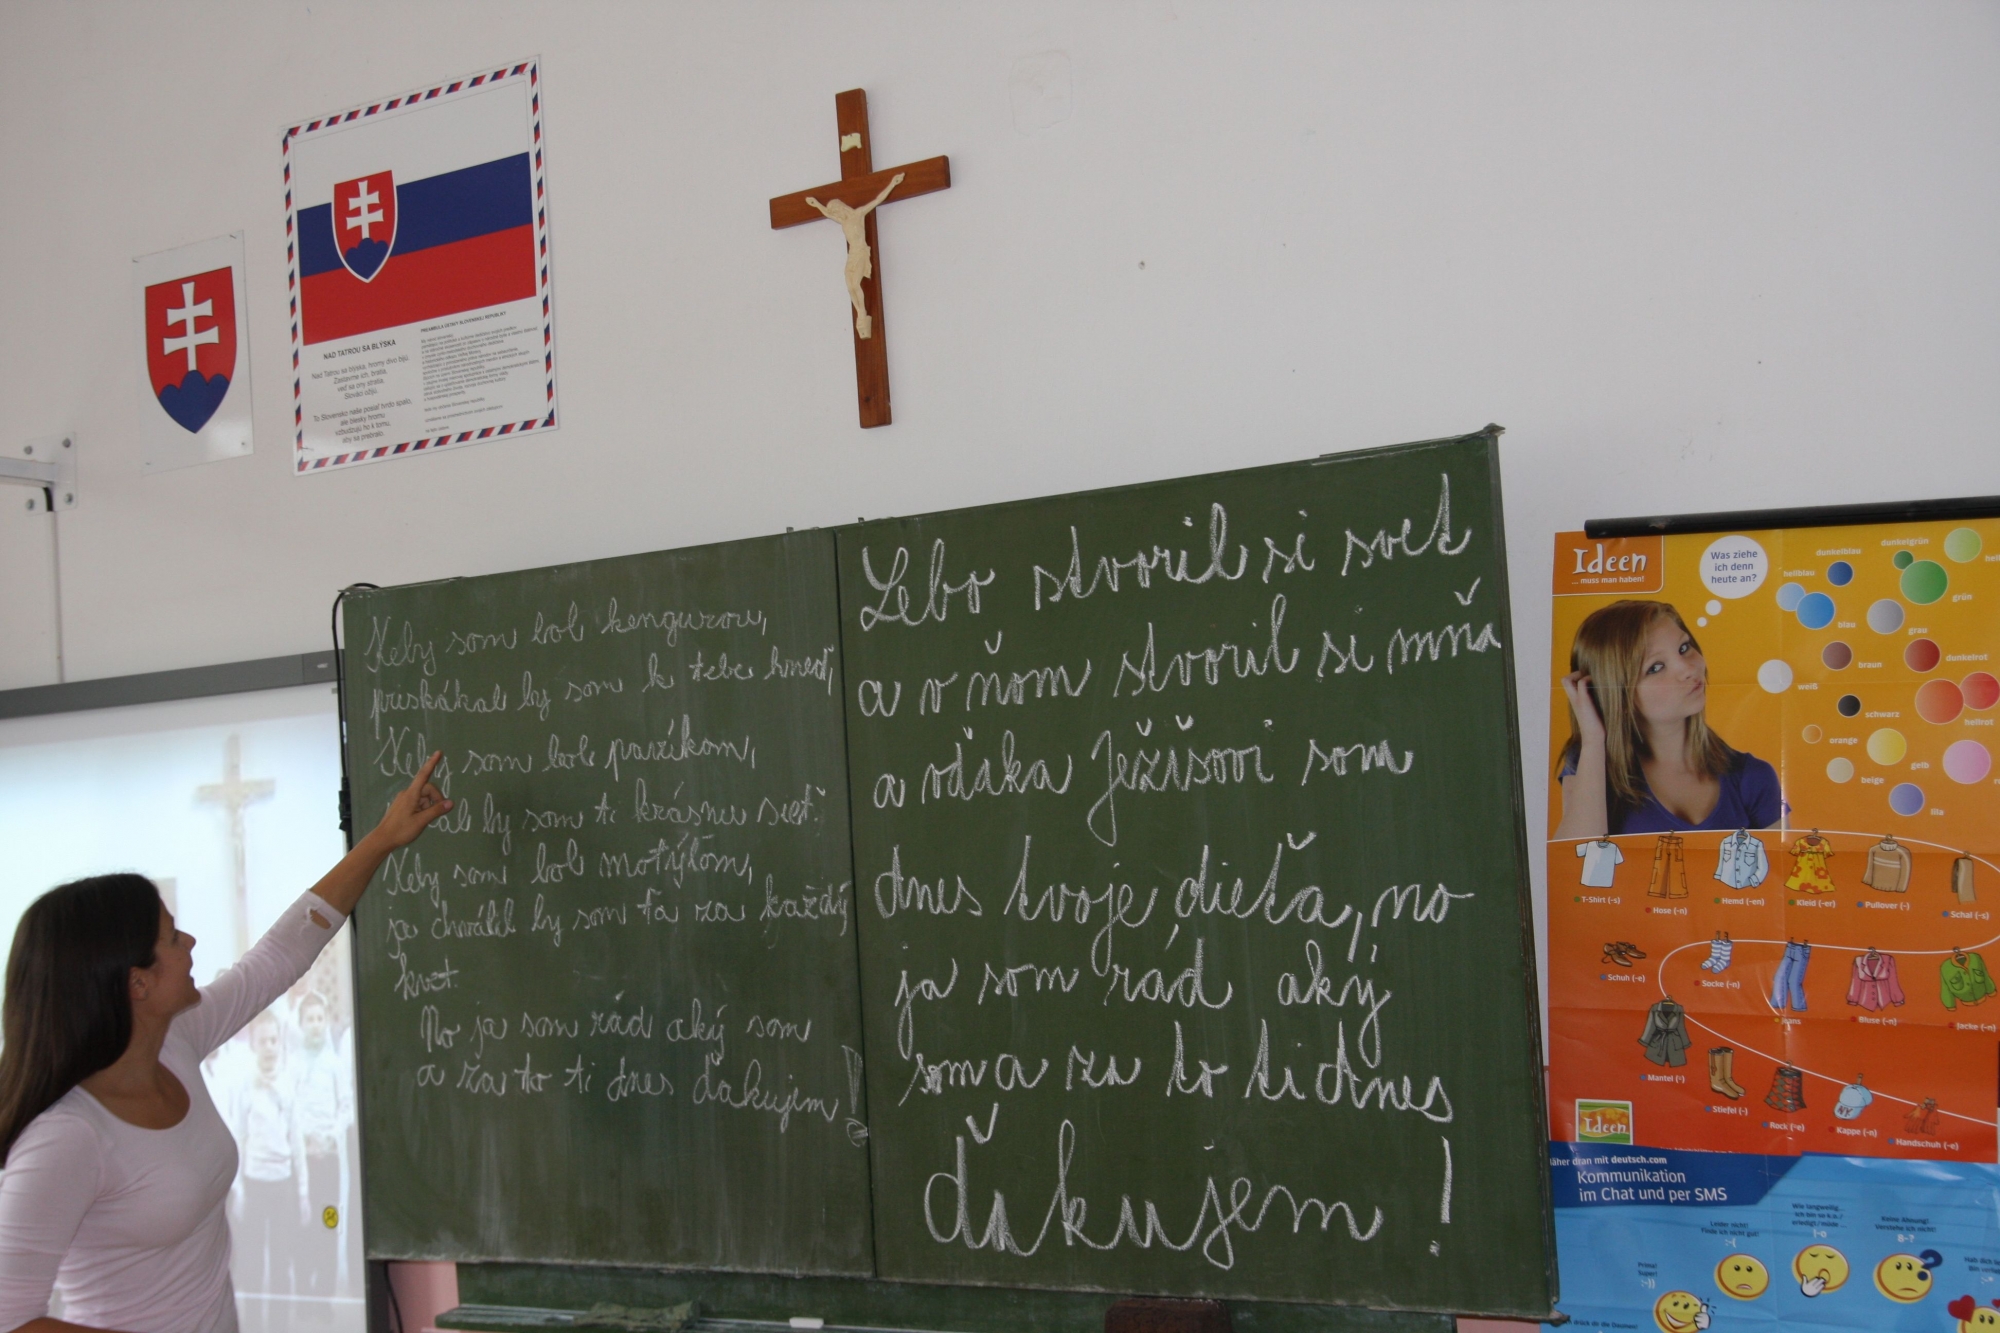 NAD TATROU SA BLÝSKA
Nad Tatrou sa blýska, hromy divo bijú.
Zastavme ich, bratia,
veď sa ony stratia,
Slováci ožijú.
To Slovensko naše posiaľ tvrdo spalo,
ale blesky hromu
vzbudzujú ho k tomu,
aby sa prebralo.
PREAMBULA ÚSTAVY SLOVENSKEJ REPUBLIKY
Keby som bol kengurou,
priskákal by som k tebe hneď,
Keby som bol pavúkom,
by som ti krásnu sieť.
Keby som bol motýľom,
ja chválil by som ťa za každý
kvet.
No ja som rád aký som
a za to ti dnes ďakujem!
Lebo stvoril si svet
a v ňom stvoril si mňa
a vďaka Ježišovi som
dnes tvoje dieťa, no
ja som rád aký
som a za to ti dnes
ďakujem!
Ideen
... muss man haben!
Was ziehe
ich denn
heute an?
dunkelblau
dunkelgrün
hellblau
grün
blau
grau
braun
dunkelrot
weiß
schwarz
hellrot
orange
gelb
beige
lila
T-Shirt (-s)
Hose (-n)
Hemd (-en)
Kleid (-er)
Pullover (-)
Schal (-s)
Schuh (-e)
Socke (-n)
Jeans
Bluse (-n)
Jacke (-n)
Mantel (-̈)
Stiefel (-)
Rock (-̈e)
Kappe (-n)
Handschuh (-e)
Ideen
näher dran mit deutsch.com
Kommunikation
im Chat und per SMS
Leider nicht!
Finde ich nicht gut!
:-(
Wie langweilig...
:-o
Keine Ahnung!
Verstehe ich nicht!
8-?
Prima!
Super!
:-))